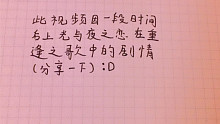 此视频因一段时间
与上光与夜之恋在重
逢之歌中的剧情
(分享一下) :D